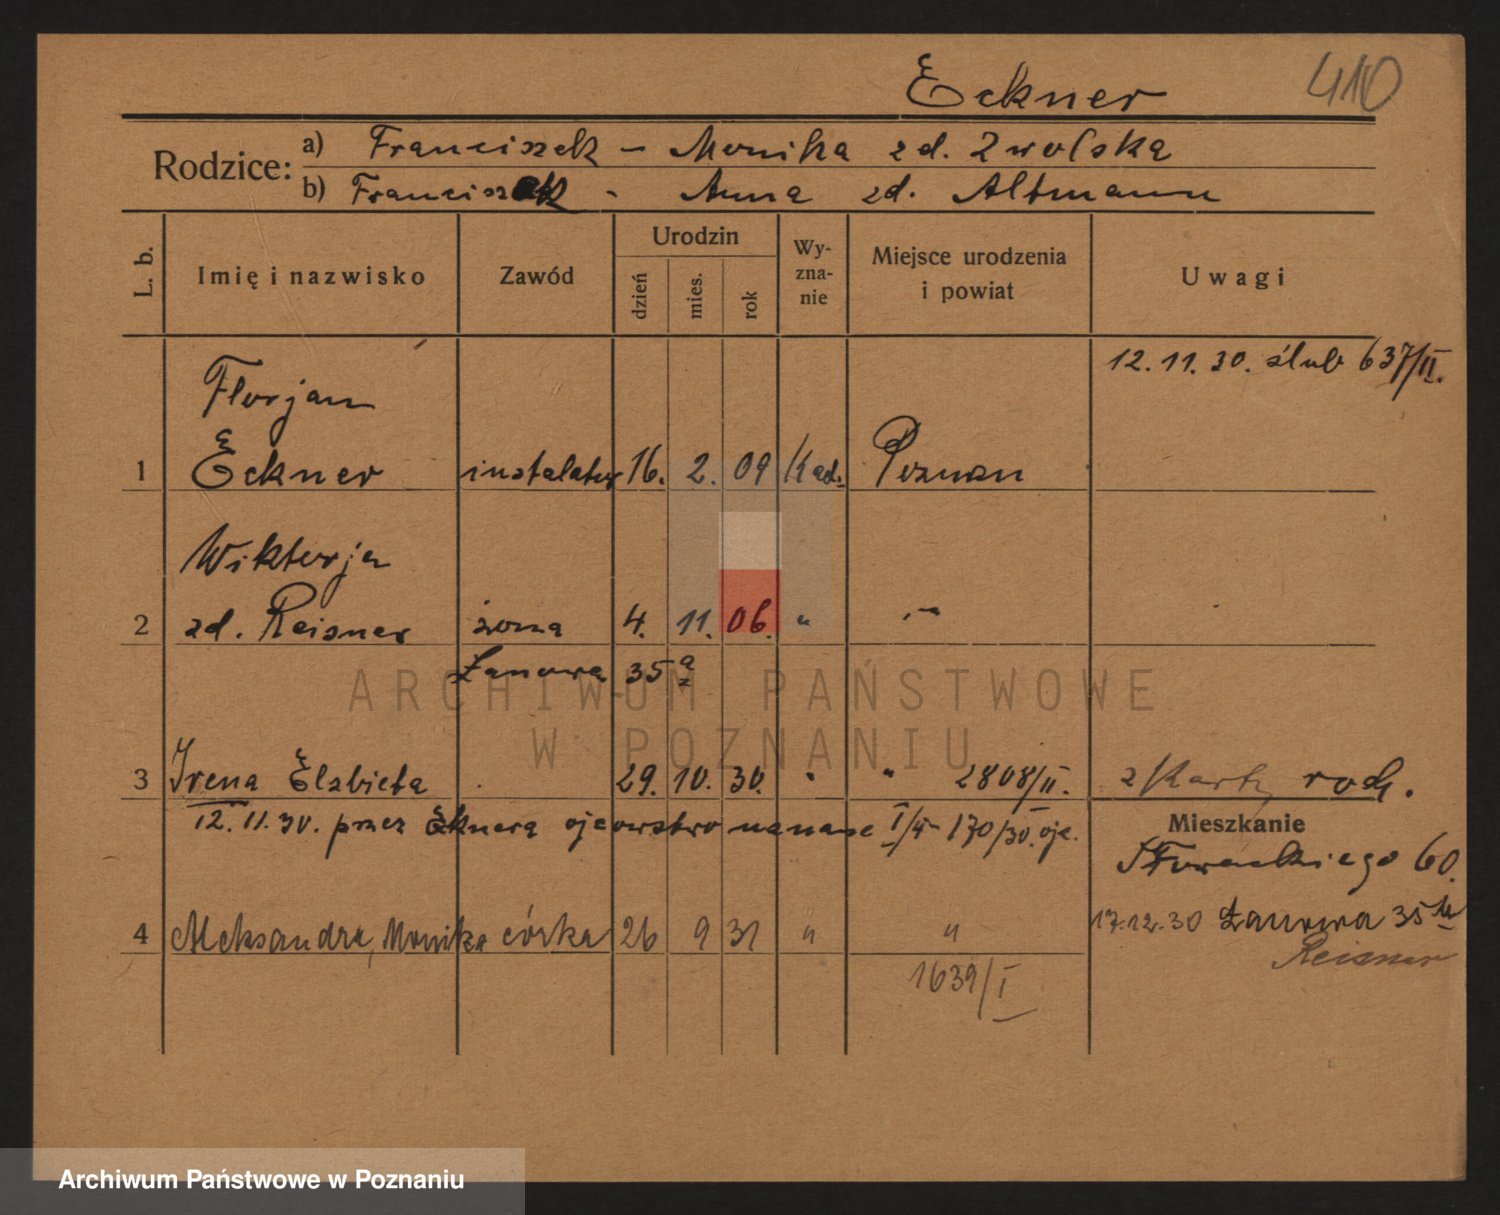 Eckner 410
Rodzice: a) Franciszek – Monika zd. Zwolska
b) Franciszek - Anna zd. Altmann
L. b. Imię i nazwisko Zawód Urodzin dzień mies. rok Wy-zna-nie Miejsce urodzenia i powiat Uwagi
12.11.30. ślub 637/II.
Florjan
1 Eckner instalator 16. 2. 09 Kat. Poznan
Wiktorja
2 zd. Reisner żona 4. 11. 06. " "
Łanowa 35a
ARCHIWUM PAŃSTWOWE
W POZNANIU
3 Irena Elzbieta 29. 10. 30. " " 2808/II. z Karty rod.
12.11.30. przez Eknera ojcowstwo uznane I/4 - 170/30. ojc.
Mieszkanie
60.
4 Aleksandra, Monika córka 26 9 31 " "
17.12.30 Łanowa 35
Reisner
1639/I
Archiwum Państwowe w Poznaniu